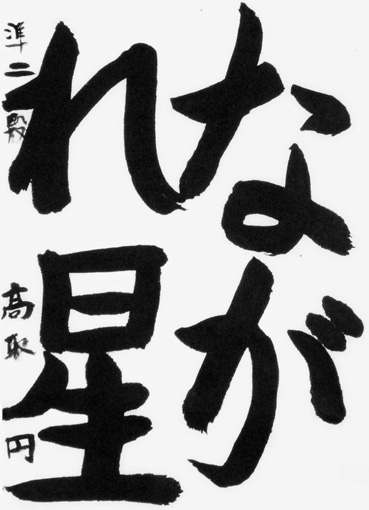 なが
れ星
準二段
高取円